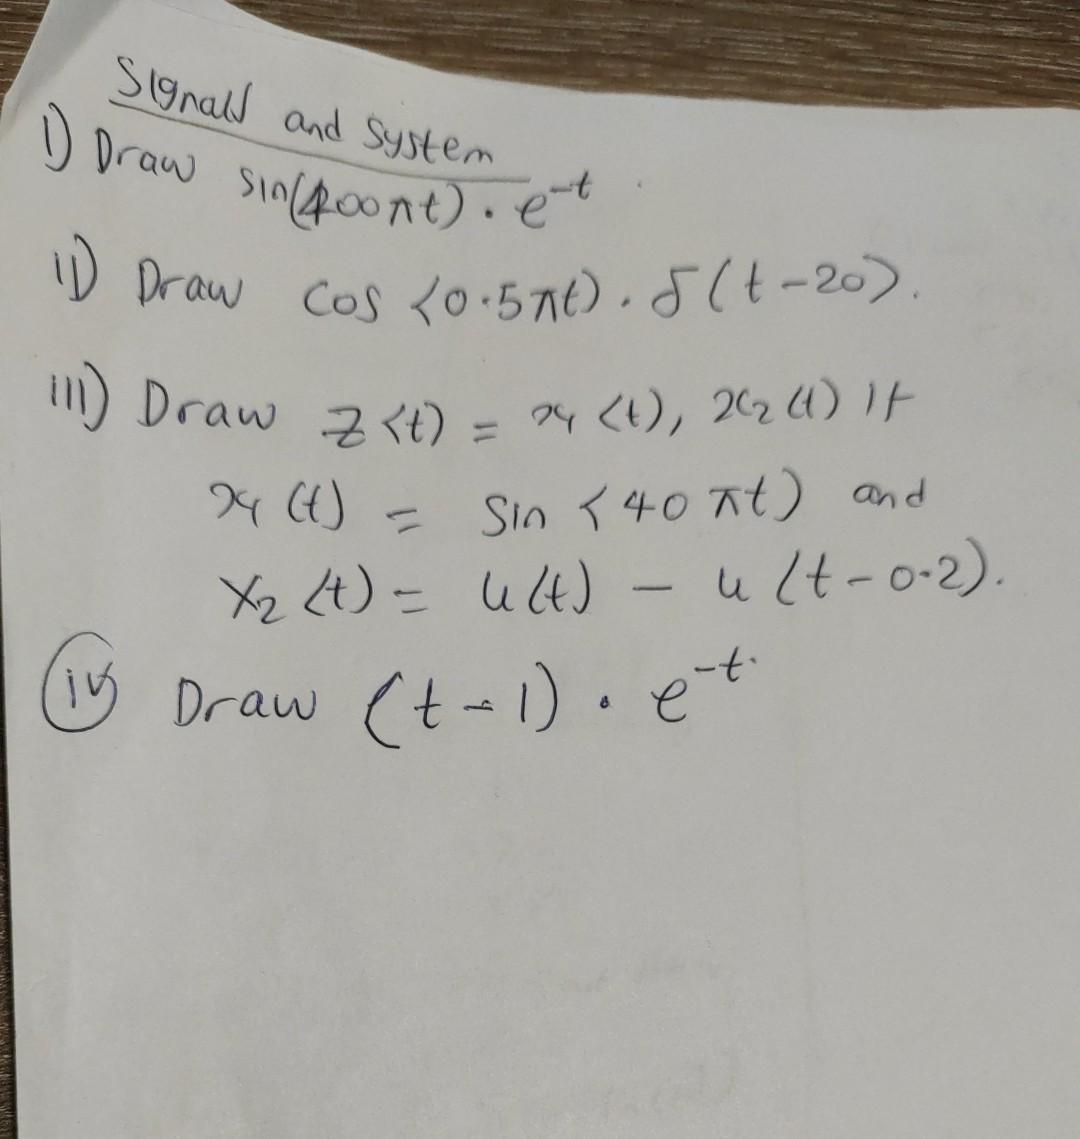 Signals and System
I) Draw sin(400πt) . e^-t
II) Draw cos (0.5πt) . δ(t-20).
III) Draw z(t) = x1(t), x2(t) If
x1(t) = Sin (40πt) and
X2(t) = u(t) - u(t-0.2).
iv Draw (t-1) . e^-t.